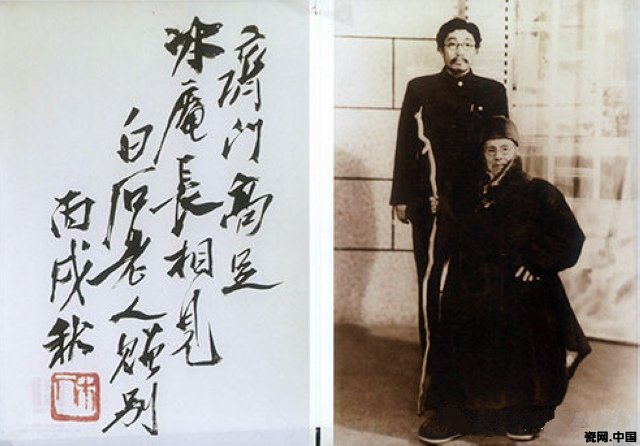 齊门高足
冰庵長相見
白石老人贈别
丙戌秋
木人
瓷网.中国